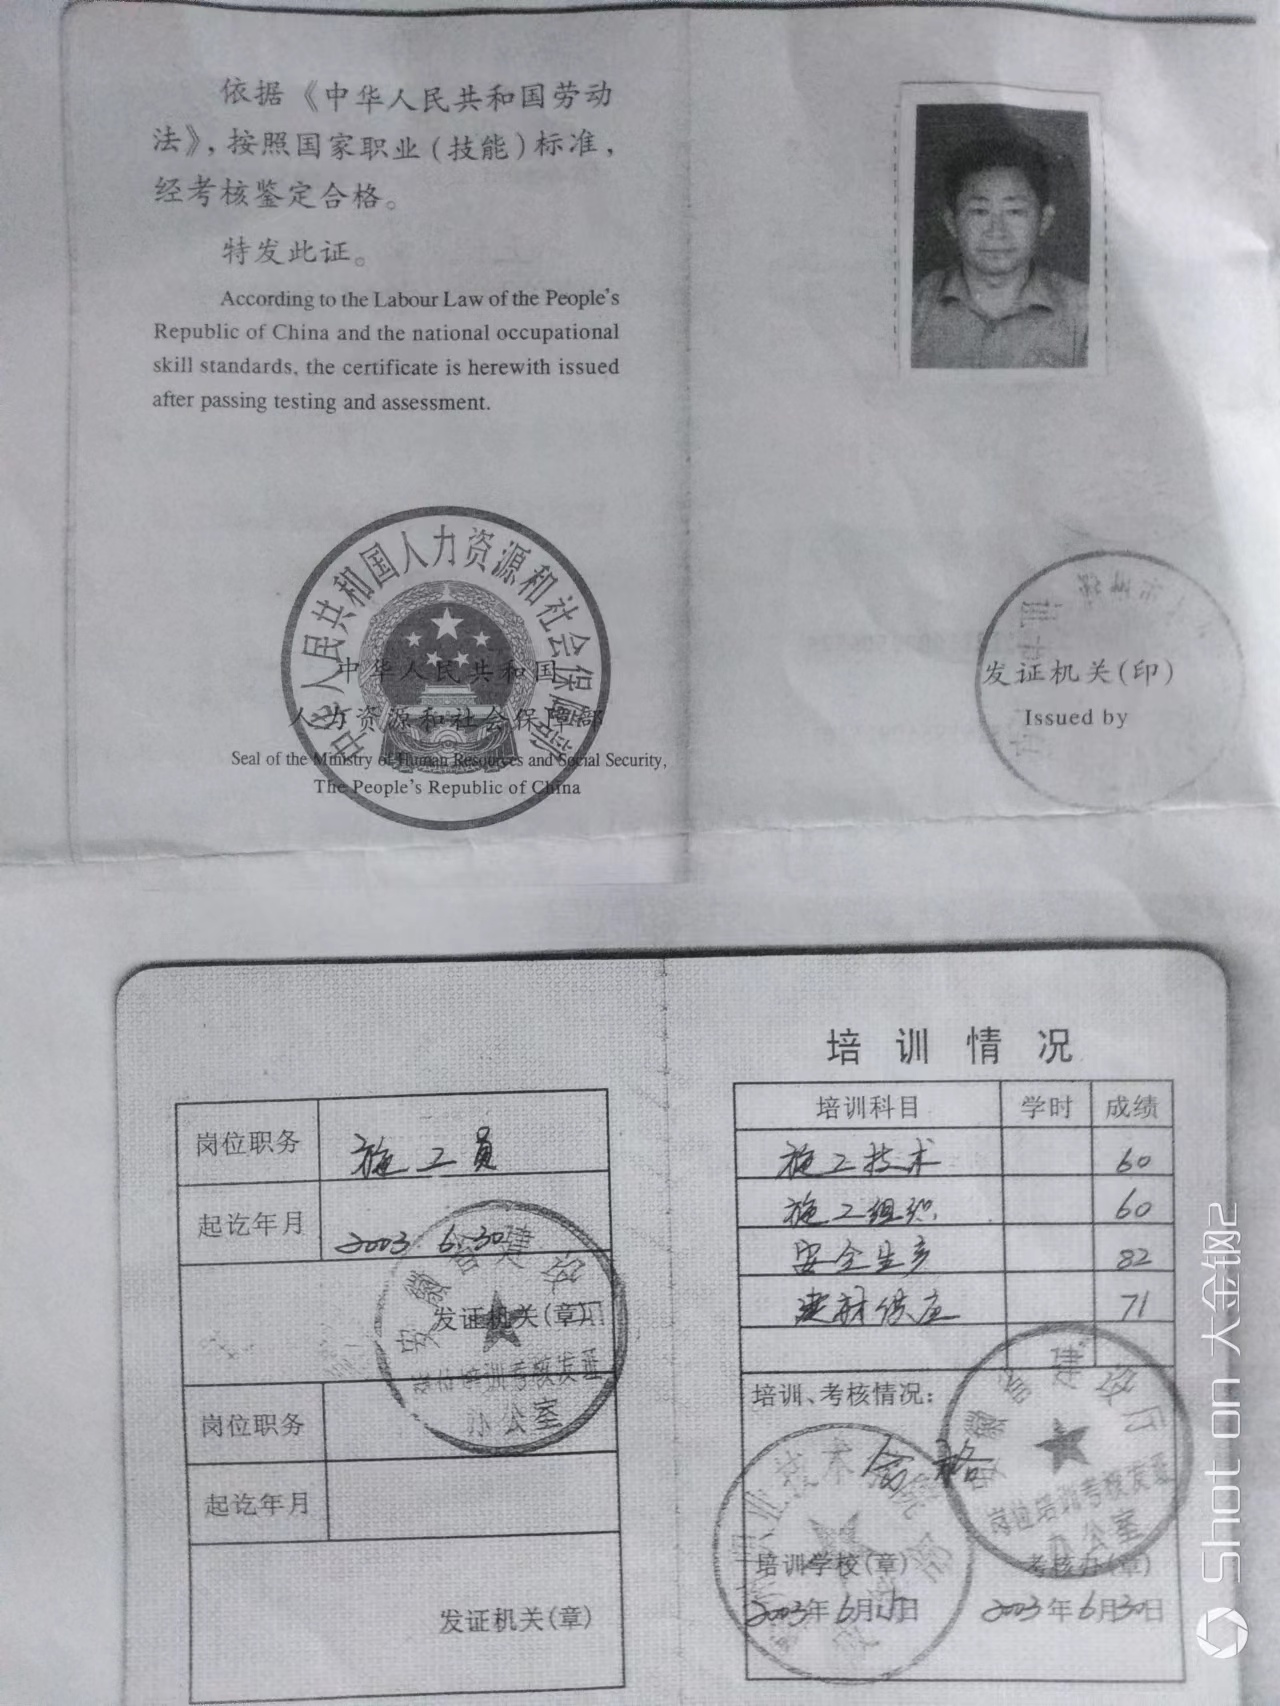 依据《中华人民共和国劳动
法》，按照国家职业（技能）标准，
经考核鉴定合格。
特发此证。
According to the Labour Law of the People's
Republic of China and the national occupational
skill standards, the certificate is herewith issued
after passing testing and assessment.
中华人民共和国人力资源和社会保障部
中华人民共和国
人力资源和社会保障部
Seal of the Ministry of Human Resources and Social Security,
The People's Republic of China
发证机关（印）
Issued by
岗位职务 施工员
起讫年月 2003.6.30
安徽省建设厅
发证机关（章）
岗位培训考核发证
办公室
岗位职务
起讫年月
发证机关（章）
培训情况
培训科目 学时 成绩
施工技术 60
施工组织 60
安全生产 82
建材供应 71
培训、考核情况：
合格
安徽省建设厅
岗位培训考核发证
办公室
职业技术
培训学校（章） 考核办（章）
2003年6月 日 2003年6月30日
Shot on 大金钢2